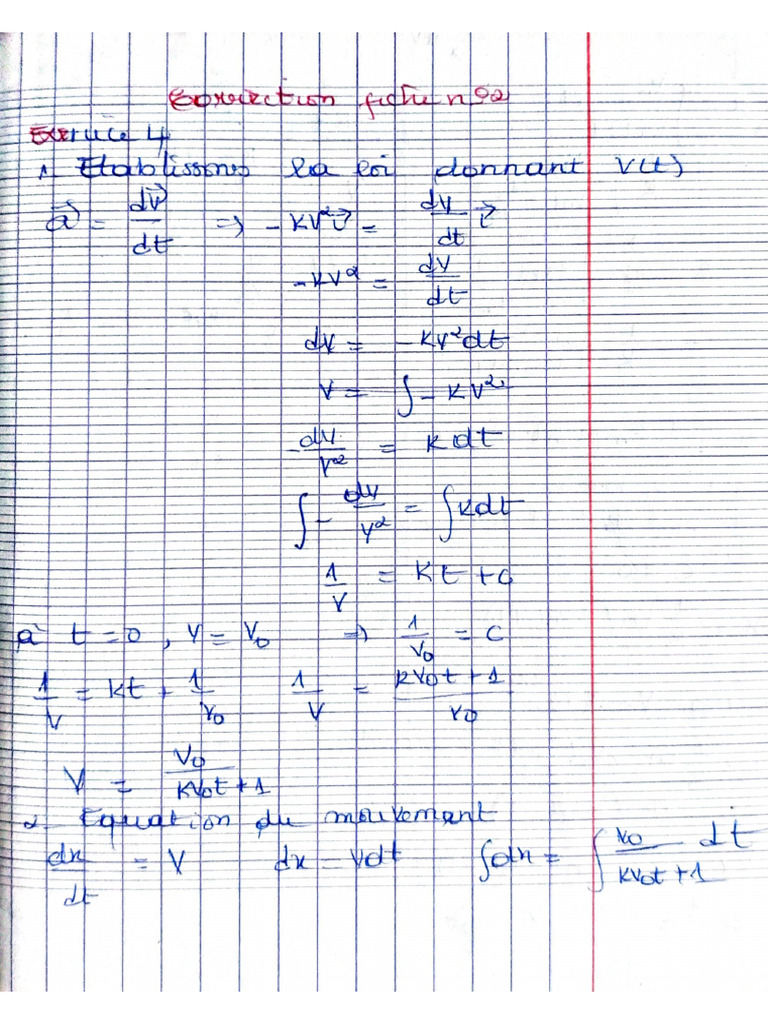 Correction fiche n°02
Exercice 4
1- Etablissons la loi donnant V(t)
a⃗ = dv⃗/dt ⇒ -KV²i⃗ = dv/dt i⃗
-KV² = dV/dt
dV = -KV²dt
V = ∫ - KV²
-dV/V² = K dt
∫ - dV/V² = ∫ Kdt
1/V = Kt + C
à t = 0 , V = V₀ ⇒ 1/V₀ = C
1/V = Kt + 1/V₀ 1/V = KV₀t + 1/V₀
V = V₀/KV₀t + 1
2- Equation du mouvement
dx/dt = V dx = Vdt ∫dx = ∫ V₀/KV₀t + 1 dt